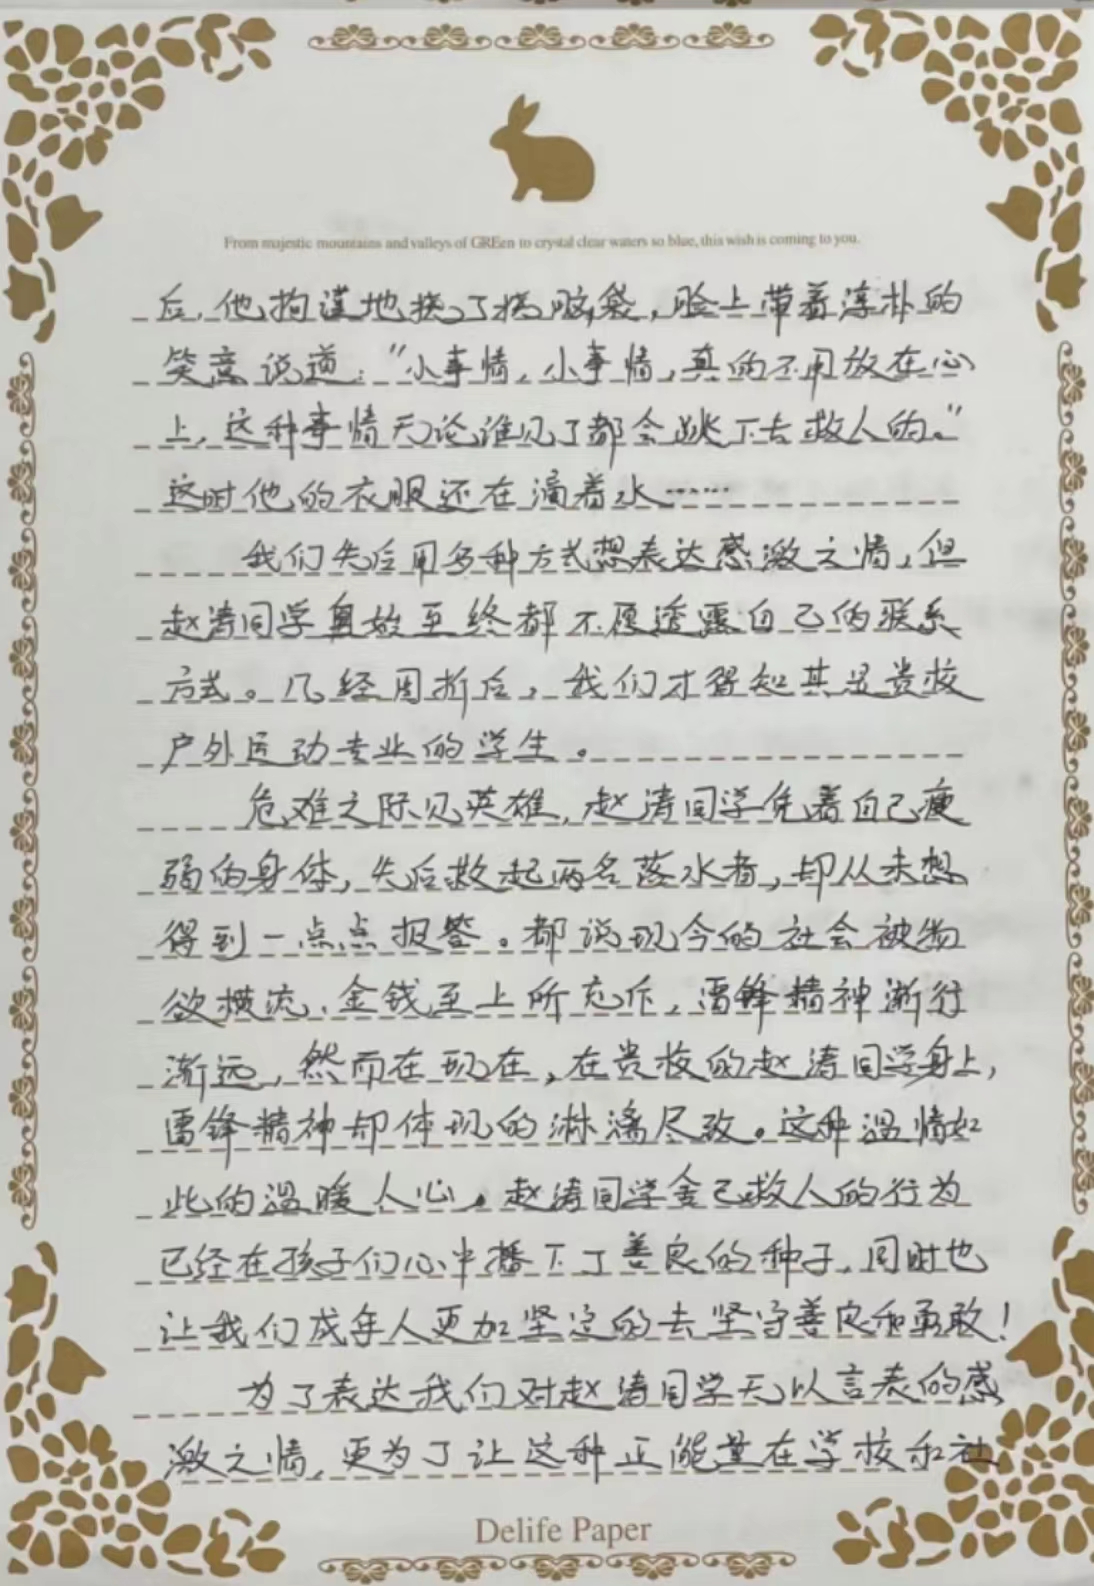 From majestic mountains and valleys of GREen to crystal clear waters so blue, this wish is coming to you.
后,他拘谨地挠了挠脑袋,脸上带着淳朴的
笑意说道:"小事情,小事情,真的不用放在心
上,这种事情无论谁见了都会跳下去救人的。"
这时他的衣服还在滴着水……
我们先后用多种方式想表达感激之情,但
赵涛同学自始至终都不愿透露自己的联系
方式。几经周折后,我们才得知其是贵校
户外运动专业的学生。
危难之际见英雄,赵涛同学凭着自己瘦
弱的身体,先后救起两名落水者,却从未想
得到一点点报答。都说现今的社会被物
欲横流、金钱至上所充斥,雷锋精神渐行
渐远,然而在现在,在贵校的赵涛同学身上,
雷锋精神却体现的淋漓尽致。这种温情如
此的温暖人心。赵涛同学舍己救人的行为
已经在孩子们心中播下了善良的种子,同时也
让我们成年人更加坚定的去坚守善良和勇敢!
为了表达我们对赵涛同学无以言表的感
激之情,更为了让这种正能量在学校和社
Delife Paper